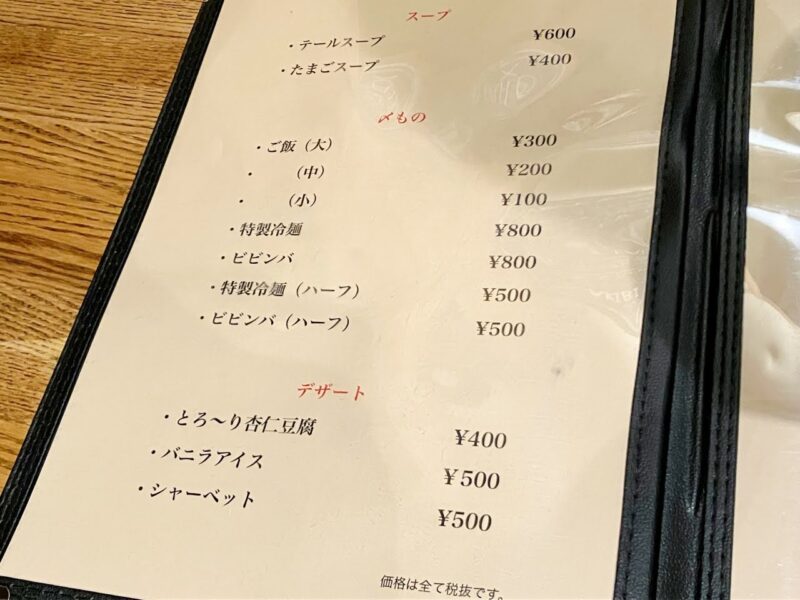 スープ
・テールスープ ¥600
・たまごスープ ¥400
〆もの
・ご飯（大） ¥300
・（中） ¥200
・（小） ¥100
・特製冷麺 ¥800
・ビビンバ ¥800
・特製冷麺（ハーフ） ¥500
・ビビンバ（ハーフ） ¥500
デザート
・とろ〜り杏仁豆腐 ¥400
・バニラアイス ¥500
・シャーベット ¥500
価格は全て税抜です。